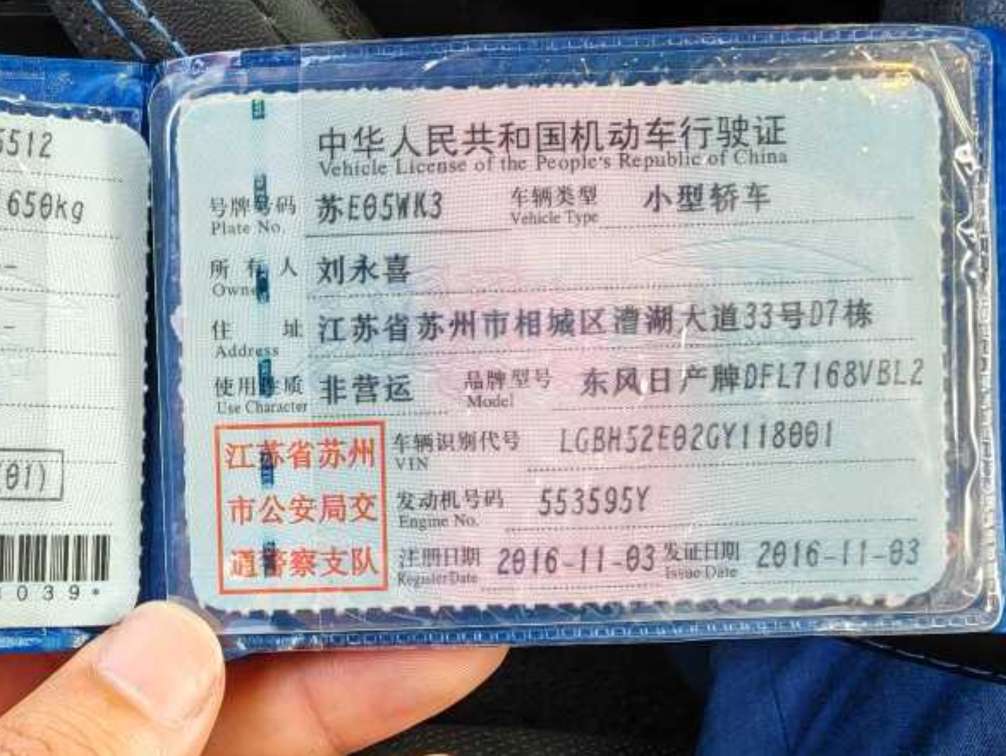 5512
1650kg
(01)
039*
中华人民共和国机动车行驶证
Vehicle License of the People's Republic of China
号牌号码 苏E05WK3 车辆类型 小型轿车
Plate No. Vehicle Type
所有人 刘永喜
Owner
住址 江苏省苏州市相城区漕湖大道33号D7栋
Address
使用性质 非营运 品牌型号 东风日产牌DFL7168VBL2
Use Character Model
江苏省苏州
市公安局交
通警察支队
车辆识别代号 LGBH52E02GY118001
VIN
发动机号码 553595Y
Engine No.
注册日期 2016-11-03 发证日期 2016-11-03
Register Date Issue Date